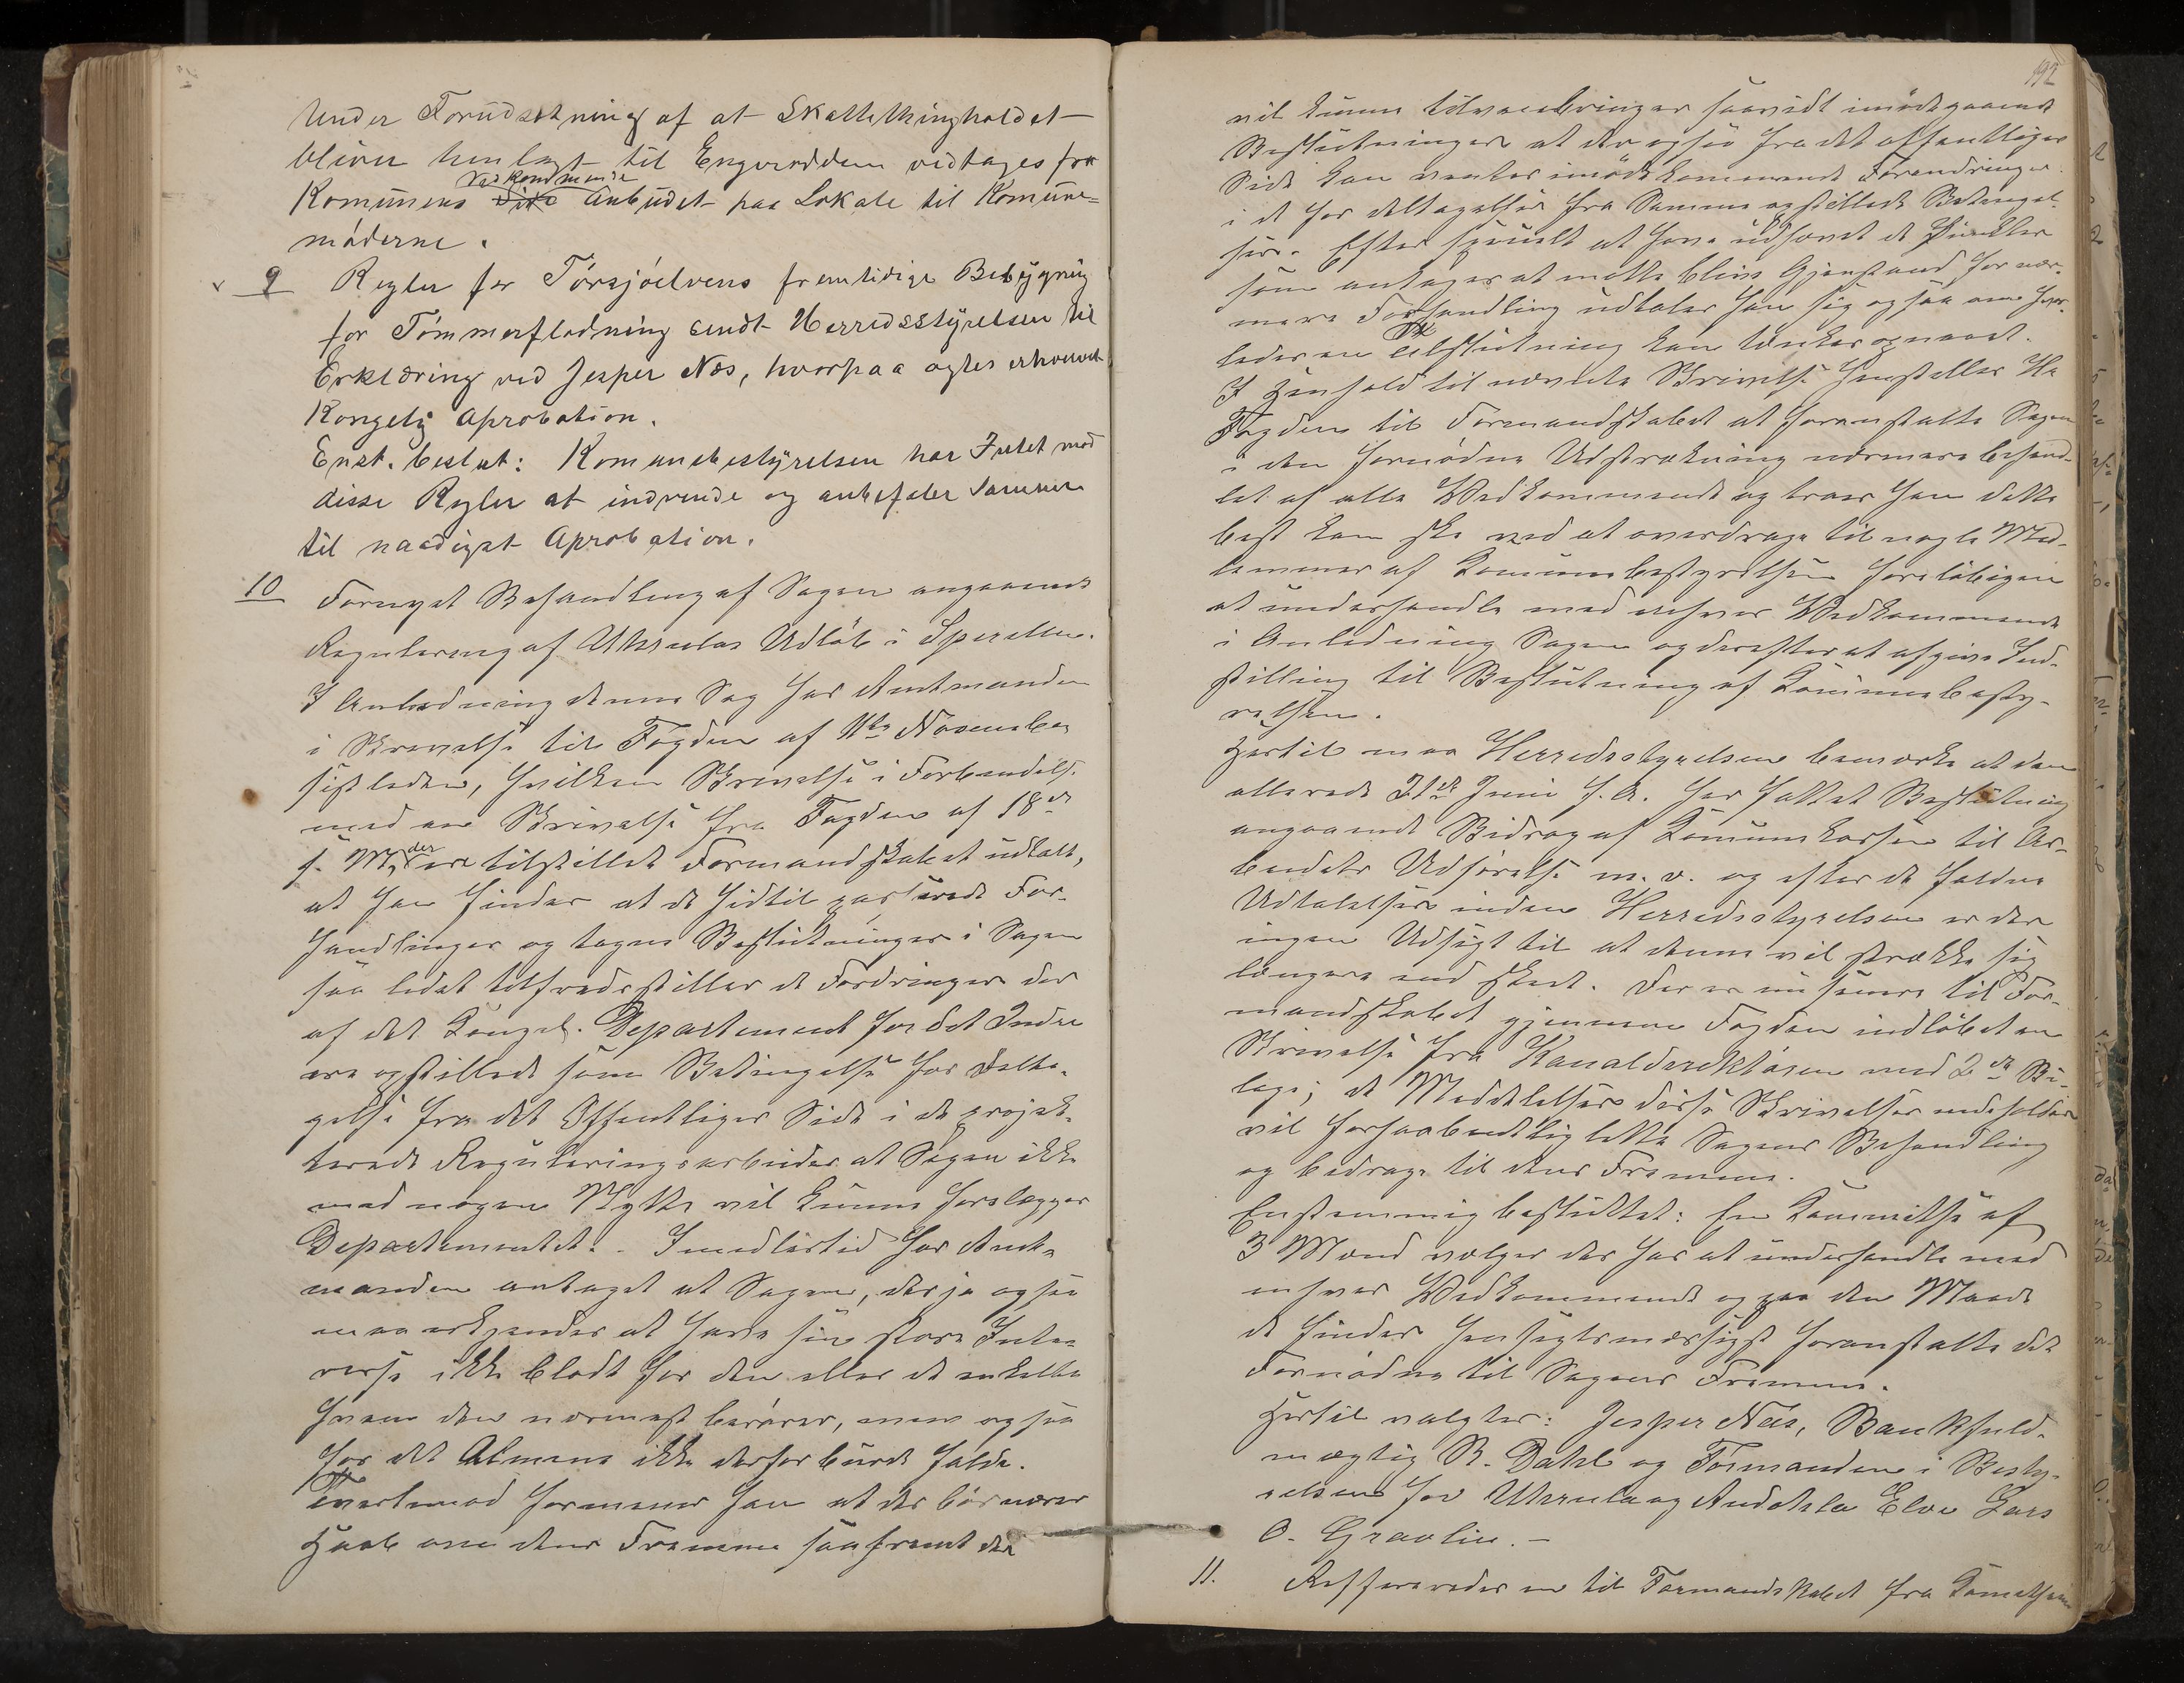 Under Forudsetning af at Skattethingholdet
bliver henlagt til Engerodden vedtages fra
Komunens vedkommende Anbudet paa Lokale til Komune-
møderne.
9 Regler for Tørsjøelvens fremtidige Benygning
for Tømmerflødning sendt Herredsstyrelsen til
Erklæring ved Jesper Næs, hvorpaa agtes erhvervet
Kongelig Aprobation.
Enst. beslut: Komunebestyrelsen har Intet mod
disse Regler at indvende og anbefaler samme
til naadigst Aprobation.
10 Fornyet Behandling af Sagen angaaende
Regulering af Uhrulas Udløb i Sperillen.
I Anledning denne Sag har Amtmanden
i Skrivelse til Fogden af 11te November
sistleden, hvilken Skrivelse i Forbindelse
med en Skrivelse fra Fogden af 18de
s. M. der er tilstillet Formandskabet udtalt,
at han finder at de hidtil passerede For-
handlinger og tagne Beslutninger i Sagen
saa lidet tilfredsstiller de Fordringer der
af det Kongel. Departement for det Indre
ere opstillede som Betingelse for Delta-
gelse fra det Offentliges Side i de projek-
terede Reguleringsarbeider at Sagen ikke
med nogen Nytte vil kunne forelægges
Departementet. Imidlertid har Amt-
manden antaget at Sagen, der jo ogsaa
maa erkjendes at have sin store Inte-
resse ikke blodt for den eller de enkelte
hvem den nærmest berører, men ogsaa
for det Almene ikke derfor burde falde.
Tvertemod formener han at der bør være
Haab om dens Fremme saafremt der
192
vil kunne tilveiebringes saavidt imødegaaende
Beslutninger at der ogsaa fra det offentliges
Side kan ventes imødekommende Forandringer
i de for deltagelse fra Samme opstillede Betingel-
ser. Efter specielt at have udhævet de Punkter
som antages at maatte blive Gjenstand for nær-
mere Forhandling udtaler han sig ogsaa om hvor-
ledes en Tilslutning kan tænkes opnaaet.
I Henhold til nævnte Skrivelse henstiller Hr
Fogden til Formandskabet at foranstalte Sagen
i den fornødne Udstrækning nærmere behand-
let af alle Vedkommende og troer han dette
best kan ske ved at overdrage til nogle Med-
lemmer af Komunebestyrelsen foreløbigen
at underhandle med enhver Vedkommende
i Anledning Sagen og derefter at afgive Ind-
stilling til Beslutning af Komunebesty-
relsen.
Hertil maa Herredsstyrelsen bemærke at den
allerede 21de Juni f. A. har fattet Beslutning
angaaende Bidrag af Komunekassen til Ar-
beidets Udførelse m. v. og efter de faldne
Udtalelser inden Herredsstyrelsen er der
ingen Udsigt til at denne vil strække sig
længere end skeet. Der er nu senere til For-
mandskabet gjennem Fogden indløbet en
Skrivelse fra Kanaldirektøren med 2de Bi-
lage; de Meddelelser disse Skrivelser indeholder
vil forhaabentlig lette Sagens Behandling
og bedrage til dens Fremme.
Enstemmig besluttet: En Kommitse af
3 Mænd vælges der har at underhandle med
enhver Vedkommende og paa den Maade
de finder hensigtsmæssigst foranstalte det
Fornødne til Sagens Fremme.
Hertil valgtes: Jesper Næs, Bankfuld-
mægtig B. Dahl og Formanden i Besty-
relsen for Uhrula og Buddalla Elve Lars
O. Gravlie. —
11. Refereredes en til Formandskabet fra Komitsen